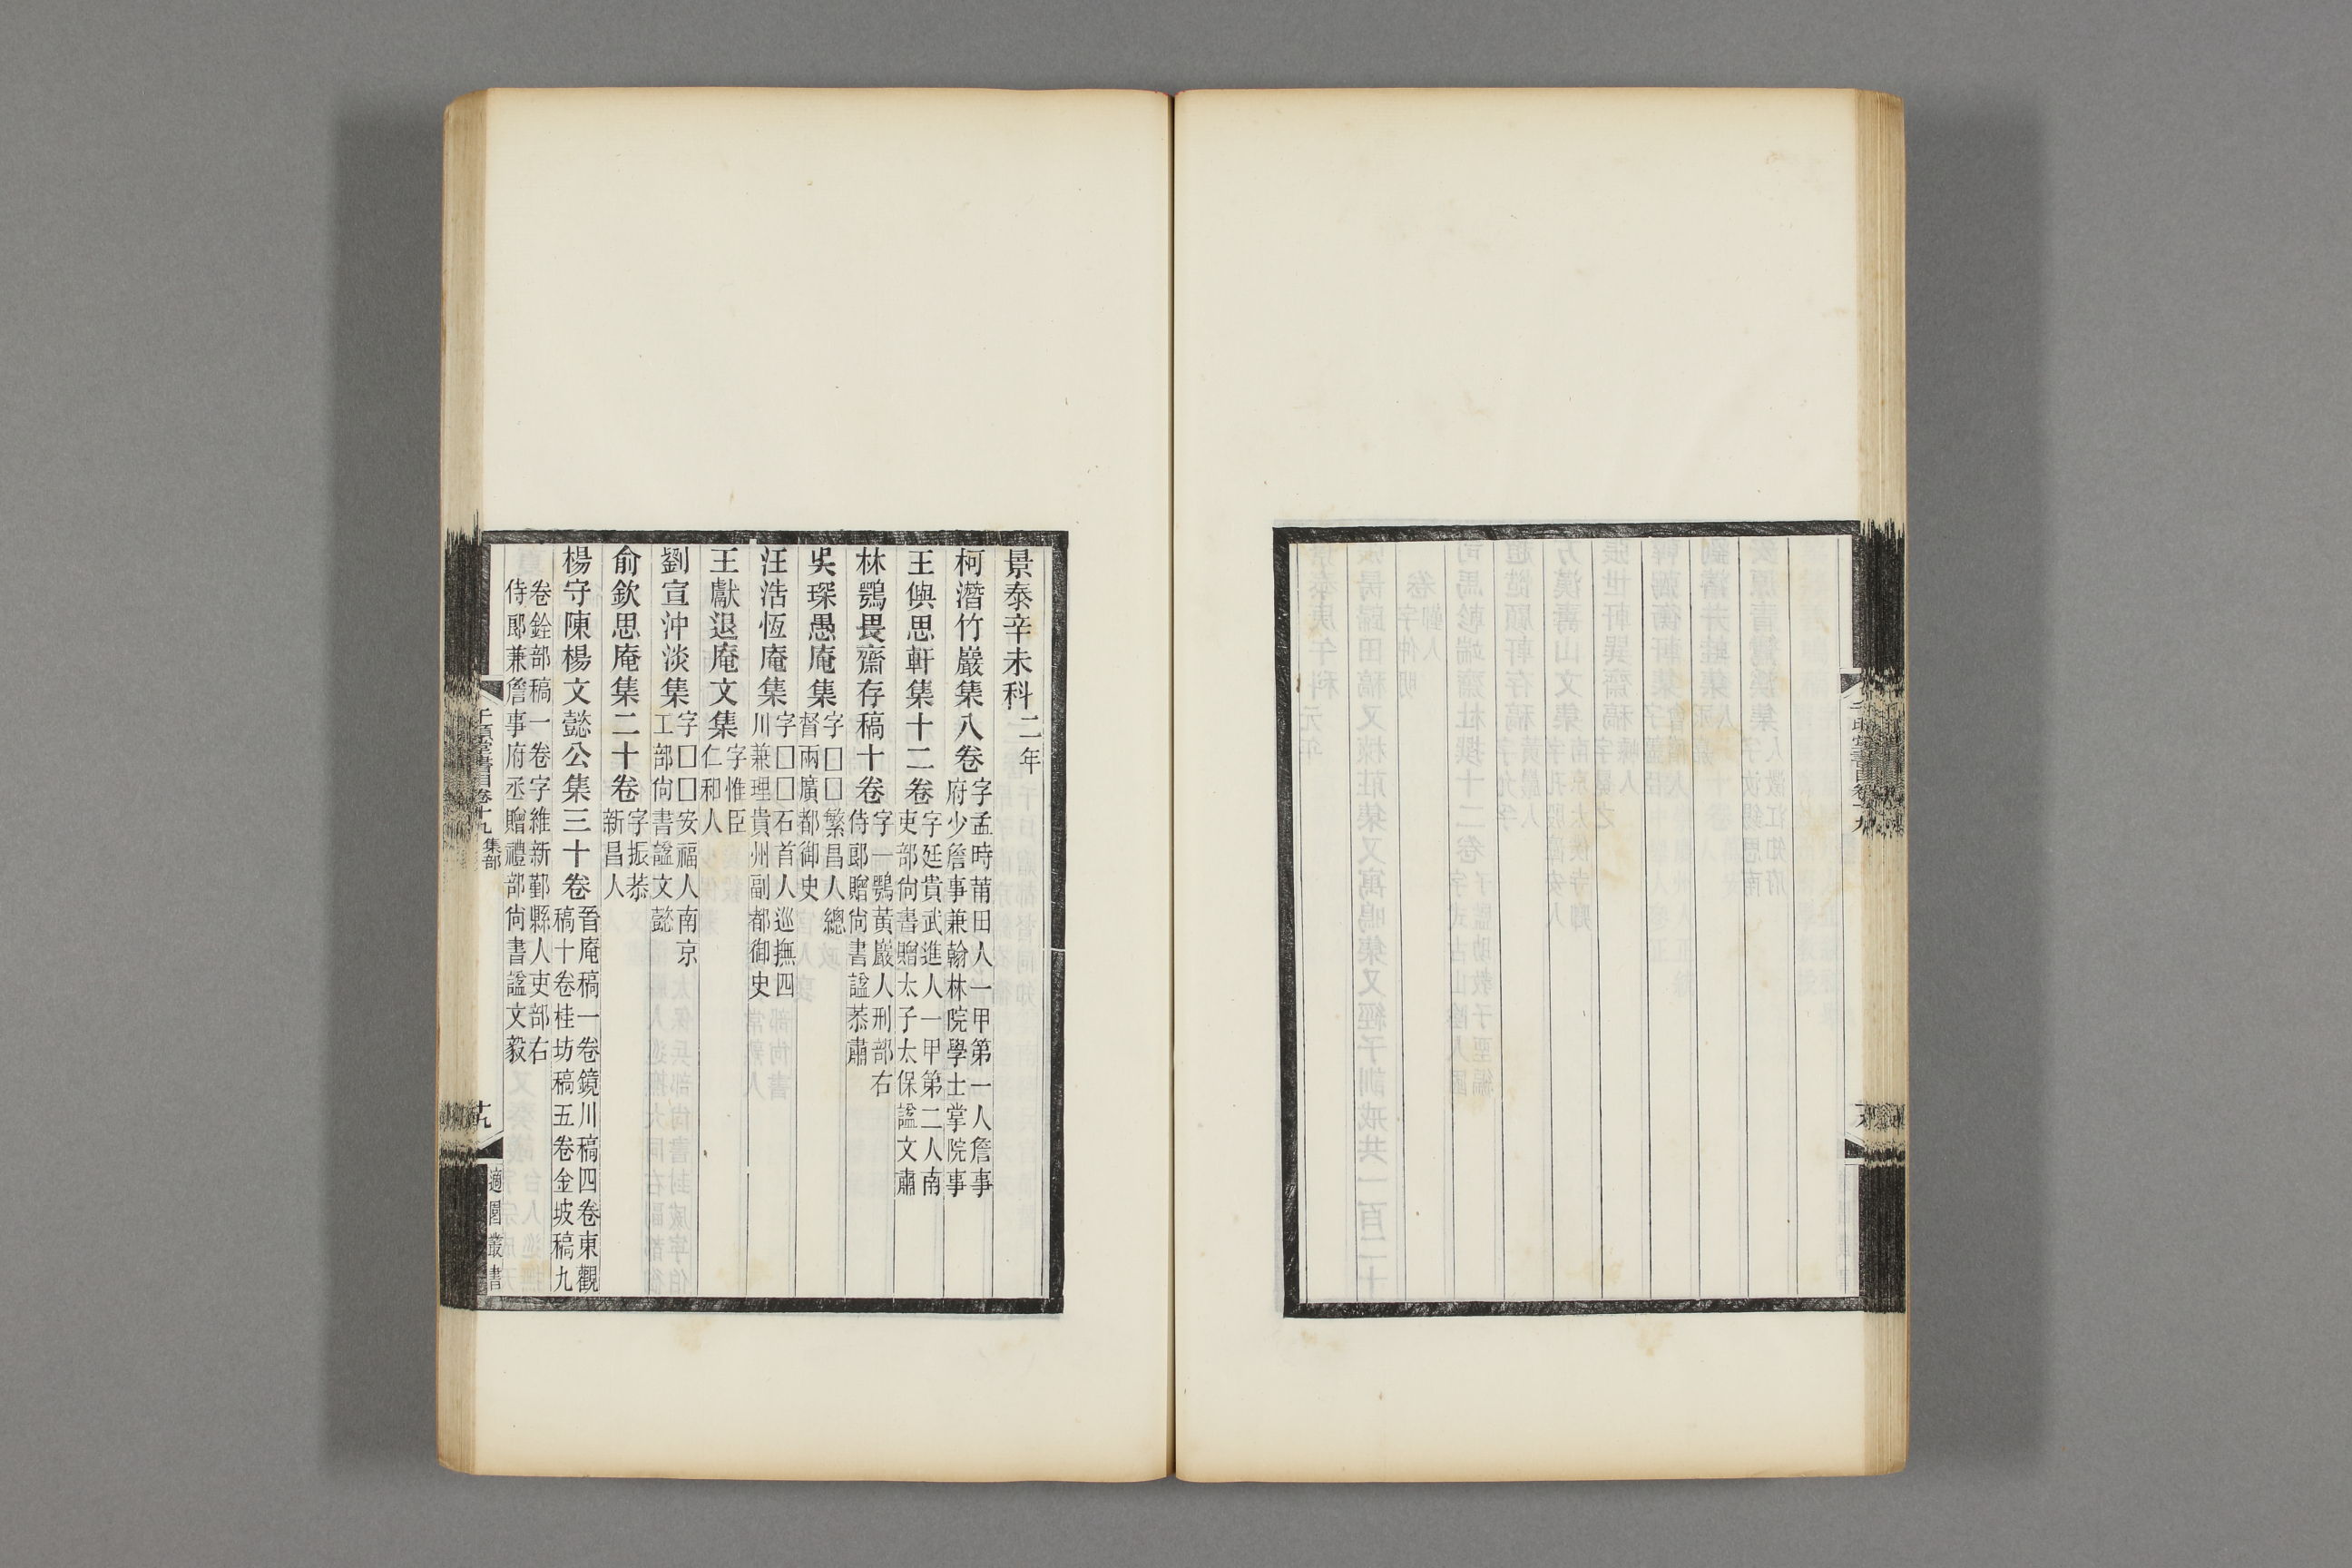 景泰辛未科二年
柯潛竹巖集八卷字孟時莆田人一甲第一人詹事府少詹事兼翰林院學士掌院事
王㒜思軒集十二卷字廷貴武進人一甲第二人南吏部尙書贈太子太保諡文肅
林鶚畏齋存稿十卷字一鶚黃巖人刑部右侍郎贈尙書諡恭肅
吳琛愚庵集字囗囗繁昌人總督兩廣都御史
汪浩恆庵集字囗囗石首人巡撫四川兼理貴州副都御史
王獻退庵文集字惟臣仁和人
劉宣沖淡集字囗囗安福人南京工部尙書諡文懿
俞欽思庵集二十卷字振恭新昌人
楊守陳楊文懿公集三十卷晉庵稿一卷鏡川稿四卷東觀稿十卷桂坊稿五卷金坡稿九
卷銓部稿一卷字維新鄞縣人吏部右侍郎兼詹事府丞贈禮部尙書諡文毅
千頃堂書目卷十九 集部
十九
適園叢書